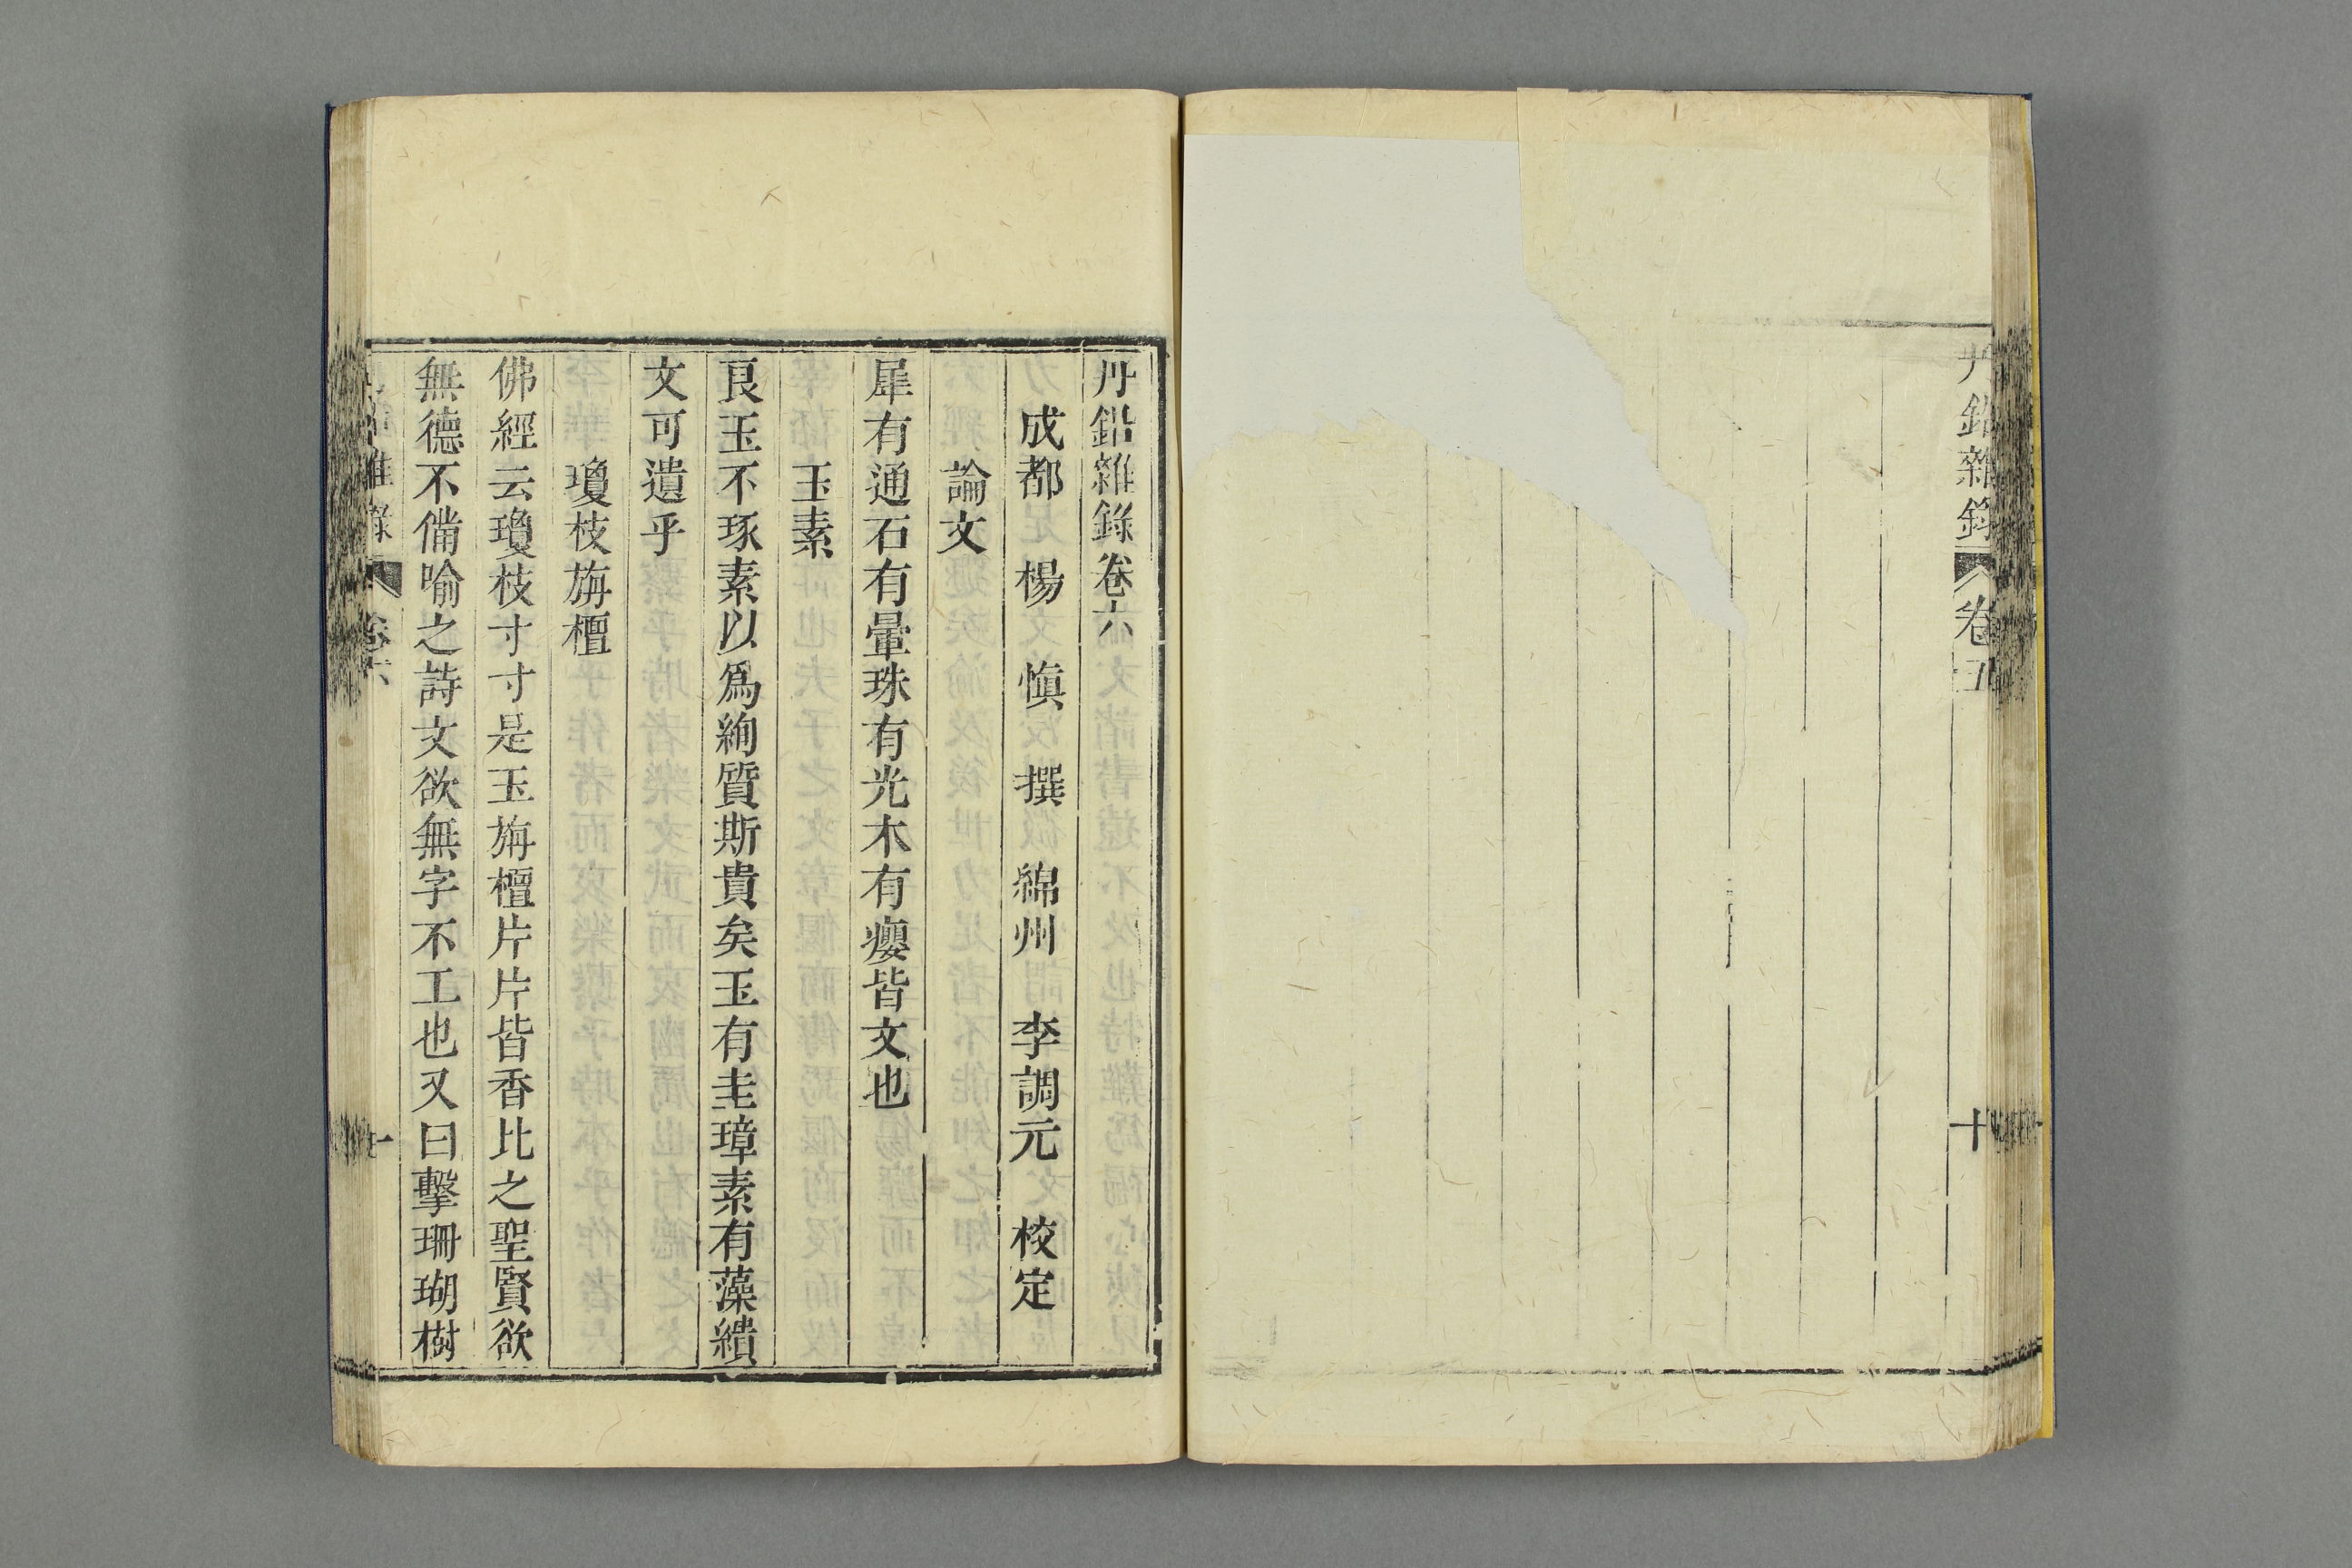 丹鉛雜錄
卷五
十
丹鉛雜錄卷六
成都 楊 慎 撰 綿州 李調元 校定
論文
犀有通石有暈珠有光木有癭皆文也
玉素
良玉不琢素以爲絢質斯貴矣玉有圭璋素有藻繢
文可遺乎
瓊枝旃檀
佛經云瓊枝寸寸是玉旃檀片片皆香比之聖賢欲
無德不備喻之詩文欲無字不工也又曰擊珊瑚樹
雜錄
卷六
一